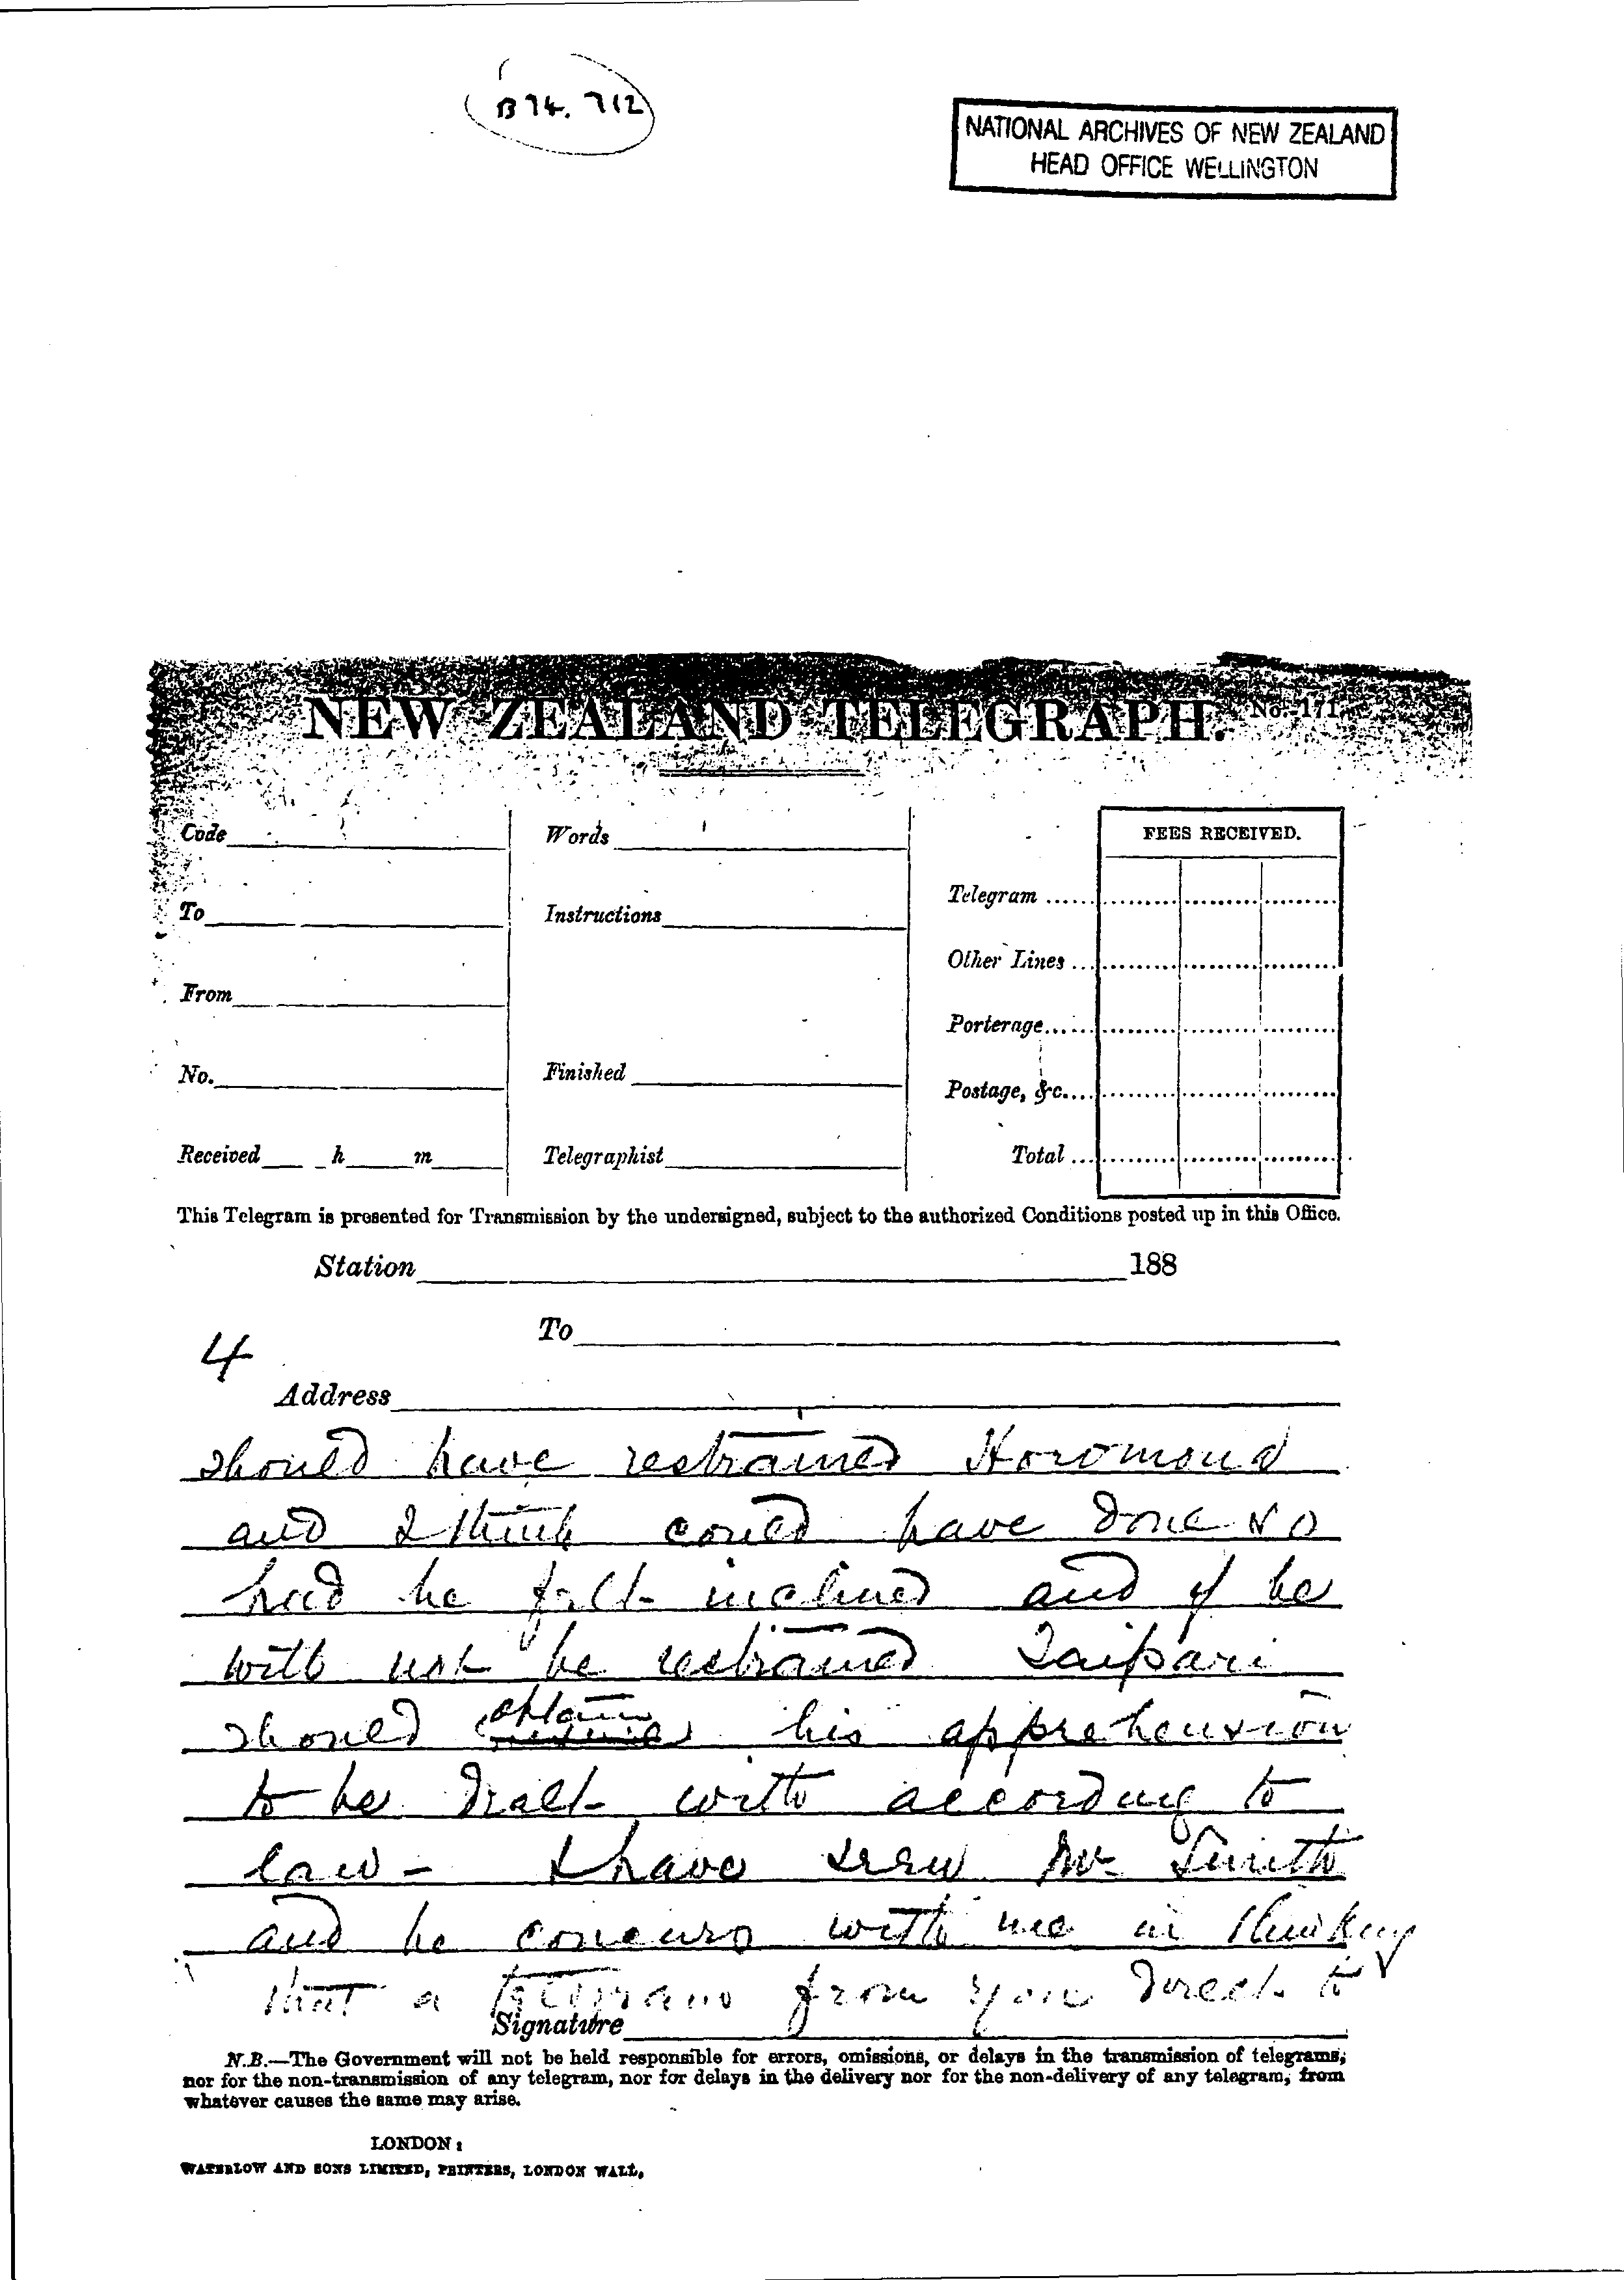 B 74. 712
NATIONAL ARCHIVES OF NEW ZEALAND
HEAD OFFICE WELLINGTON
NEW ZEALAND TELEGRAPH. No. 171.
Code
Words
FEES RECEIVED.
To
Instructions
Telegram ......
Other Lines ...
From
Porterage......
No.
Finished
Postage, &c....
Received h m
Telegraphist
Total ...
This Telegram is presented for Transmission by the undersigned, subject to the authorized Conditions posted up in this Office.
Station 188
To
4
Address
should have restrained Horomona
and I think could have done so
had he felt inclined and if he
will not be restrained Taipari
should obtain his apprehension
to be dealt with according to
law - I have seen Mr Smith
and he concurs with me in thinking
that a telegram from you direct to
Signature
N.B.—The Government will not be held responsible for errors, omissions, or delays in the transmission of telegrams;
nor for the non-transmission of any telegram, nor for delays in the delivery nor for the non-delivery of any telegram, from
whatever causes the same may arise.
LONDON:
WATERLOW AND SONS LIMITED, PRINTERS, LONDON WALL.